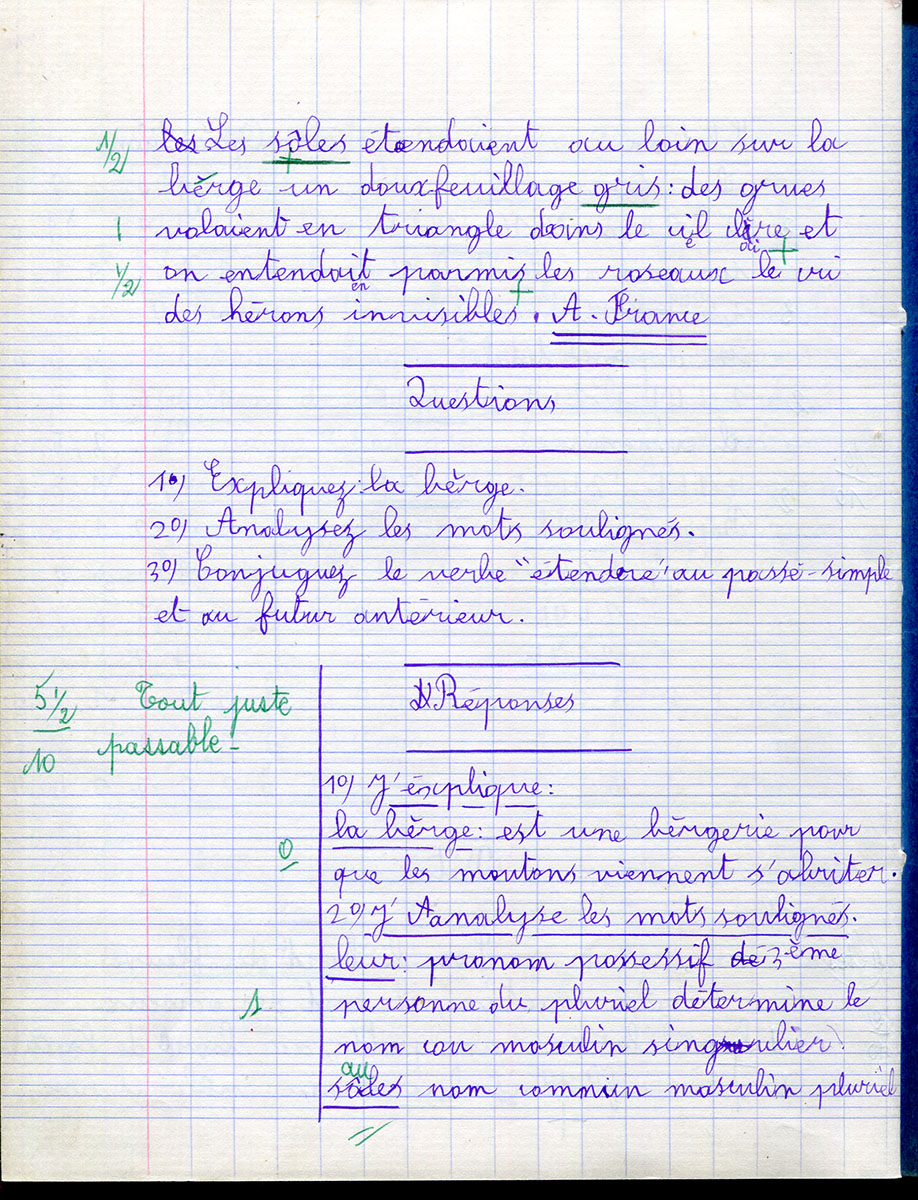 1/2 les Les sôles étendaient au loin sur la
bèrge un doux feuillage gris : des grues
1 volaient en triangle dans le ciel clire et
1/2 on entendait parmis les roseaux le cri
des hérons invisibles. A. France
Questions
1º) Expliquez : la bèrge.
2º) Analysez les mots soulignés.
3º) Conjuguez le verbe "étendre" au passé-simple
et au futur antérieur.
5 1/2
10
Tout juste
passable -
Réponses
1º) J'éxplique :
0
la bèrge : est une bèrgerie pour
que les moutons viennent s'abriter.
2º) J'Aanalyse les mots soulignés.
leur : pronom possessif de 3ème
1 personne du pluriel détermine le
nom cou masculin singulier
au
sôles nom commun masculin pluriel